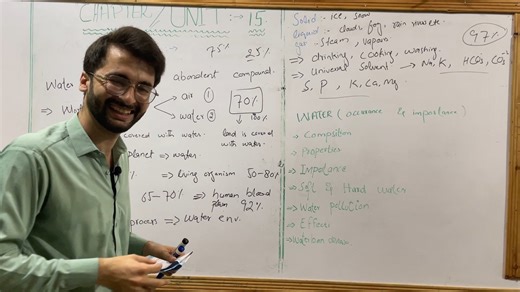 CHAPTER/UNIT : 15
75% 25%
Water abondent compound.
→ air ①
→ water ② 70%
→ 100%
covered with water. land is covered
with water.
planet → water.
⇒ living organism 50-80%
65-70% ⇒ human blood
92%
process ⇒ water env.
Solid - ice, snow
97%
gas - steam, vapors
⇒ drinking, cooking, washing.
⇒ Universal Solvent → Na, K, HCO₃, CO₃⁻²
S, P, K, Ca, Mg
WATER (occurance & importance)
→ Composition
→ Properties
→ Impotance
→ Soft & Hard water
→ Water pollution
→ Effects